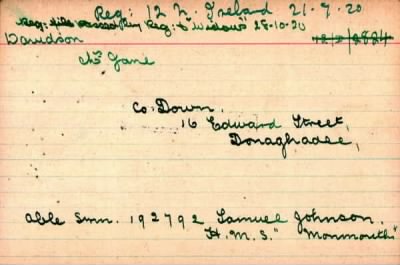 Reg: 12 N. Ireland 21.9.20
Reg: file passed by Reg: to "Widows" 28-10-20
Davidson 12/D/2824
Mrs Jane
Co. Down.
16 Edward Street,
Donaghadee,
Able Smn. 192792 Samuel Johnson.
H.M.S. "Monmouth"